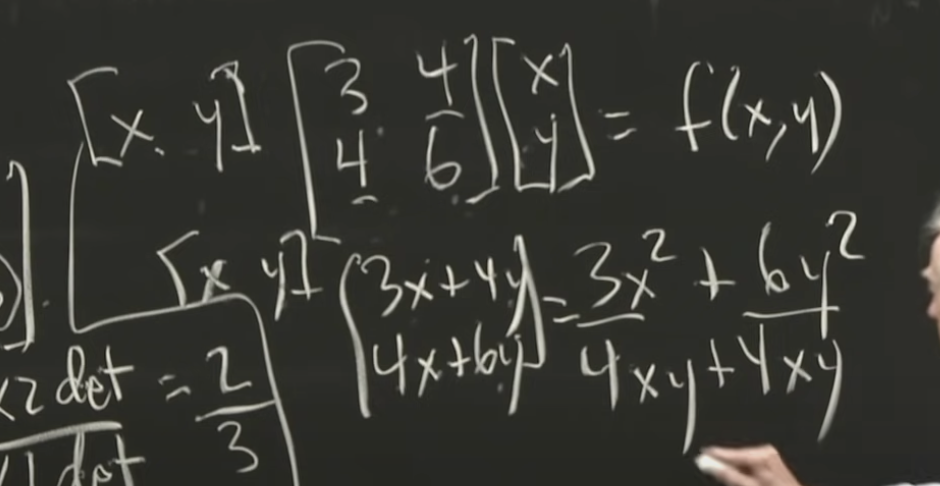 [x y] [3 4
4 6] [x
y] = f(x,y)
[x y] [3x+4y
4x+6y] = 3x² + 6y²
4xy+4xy
x2 det = 2/3
det